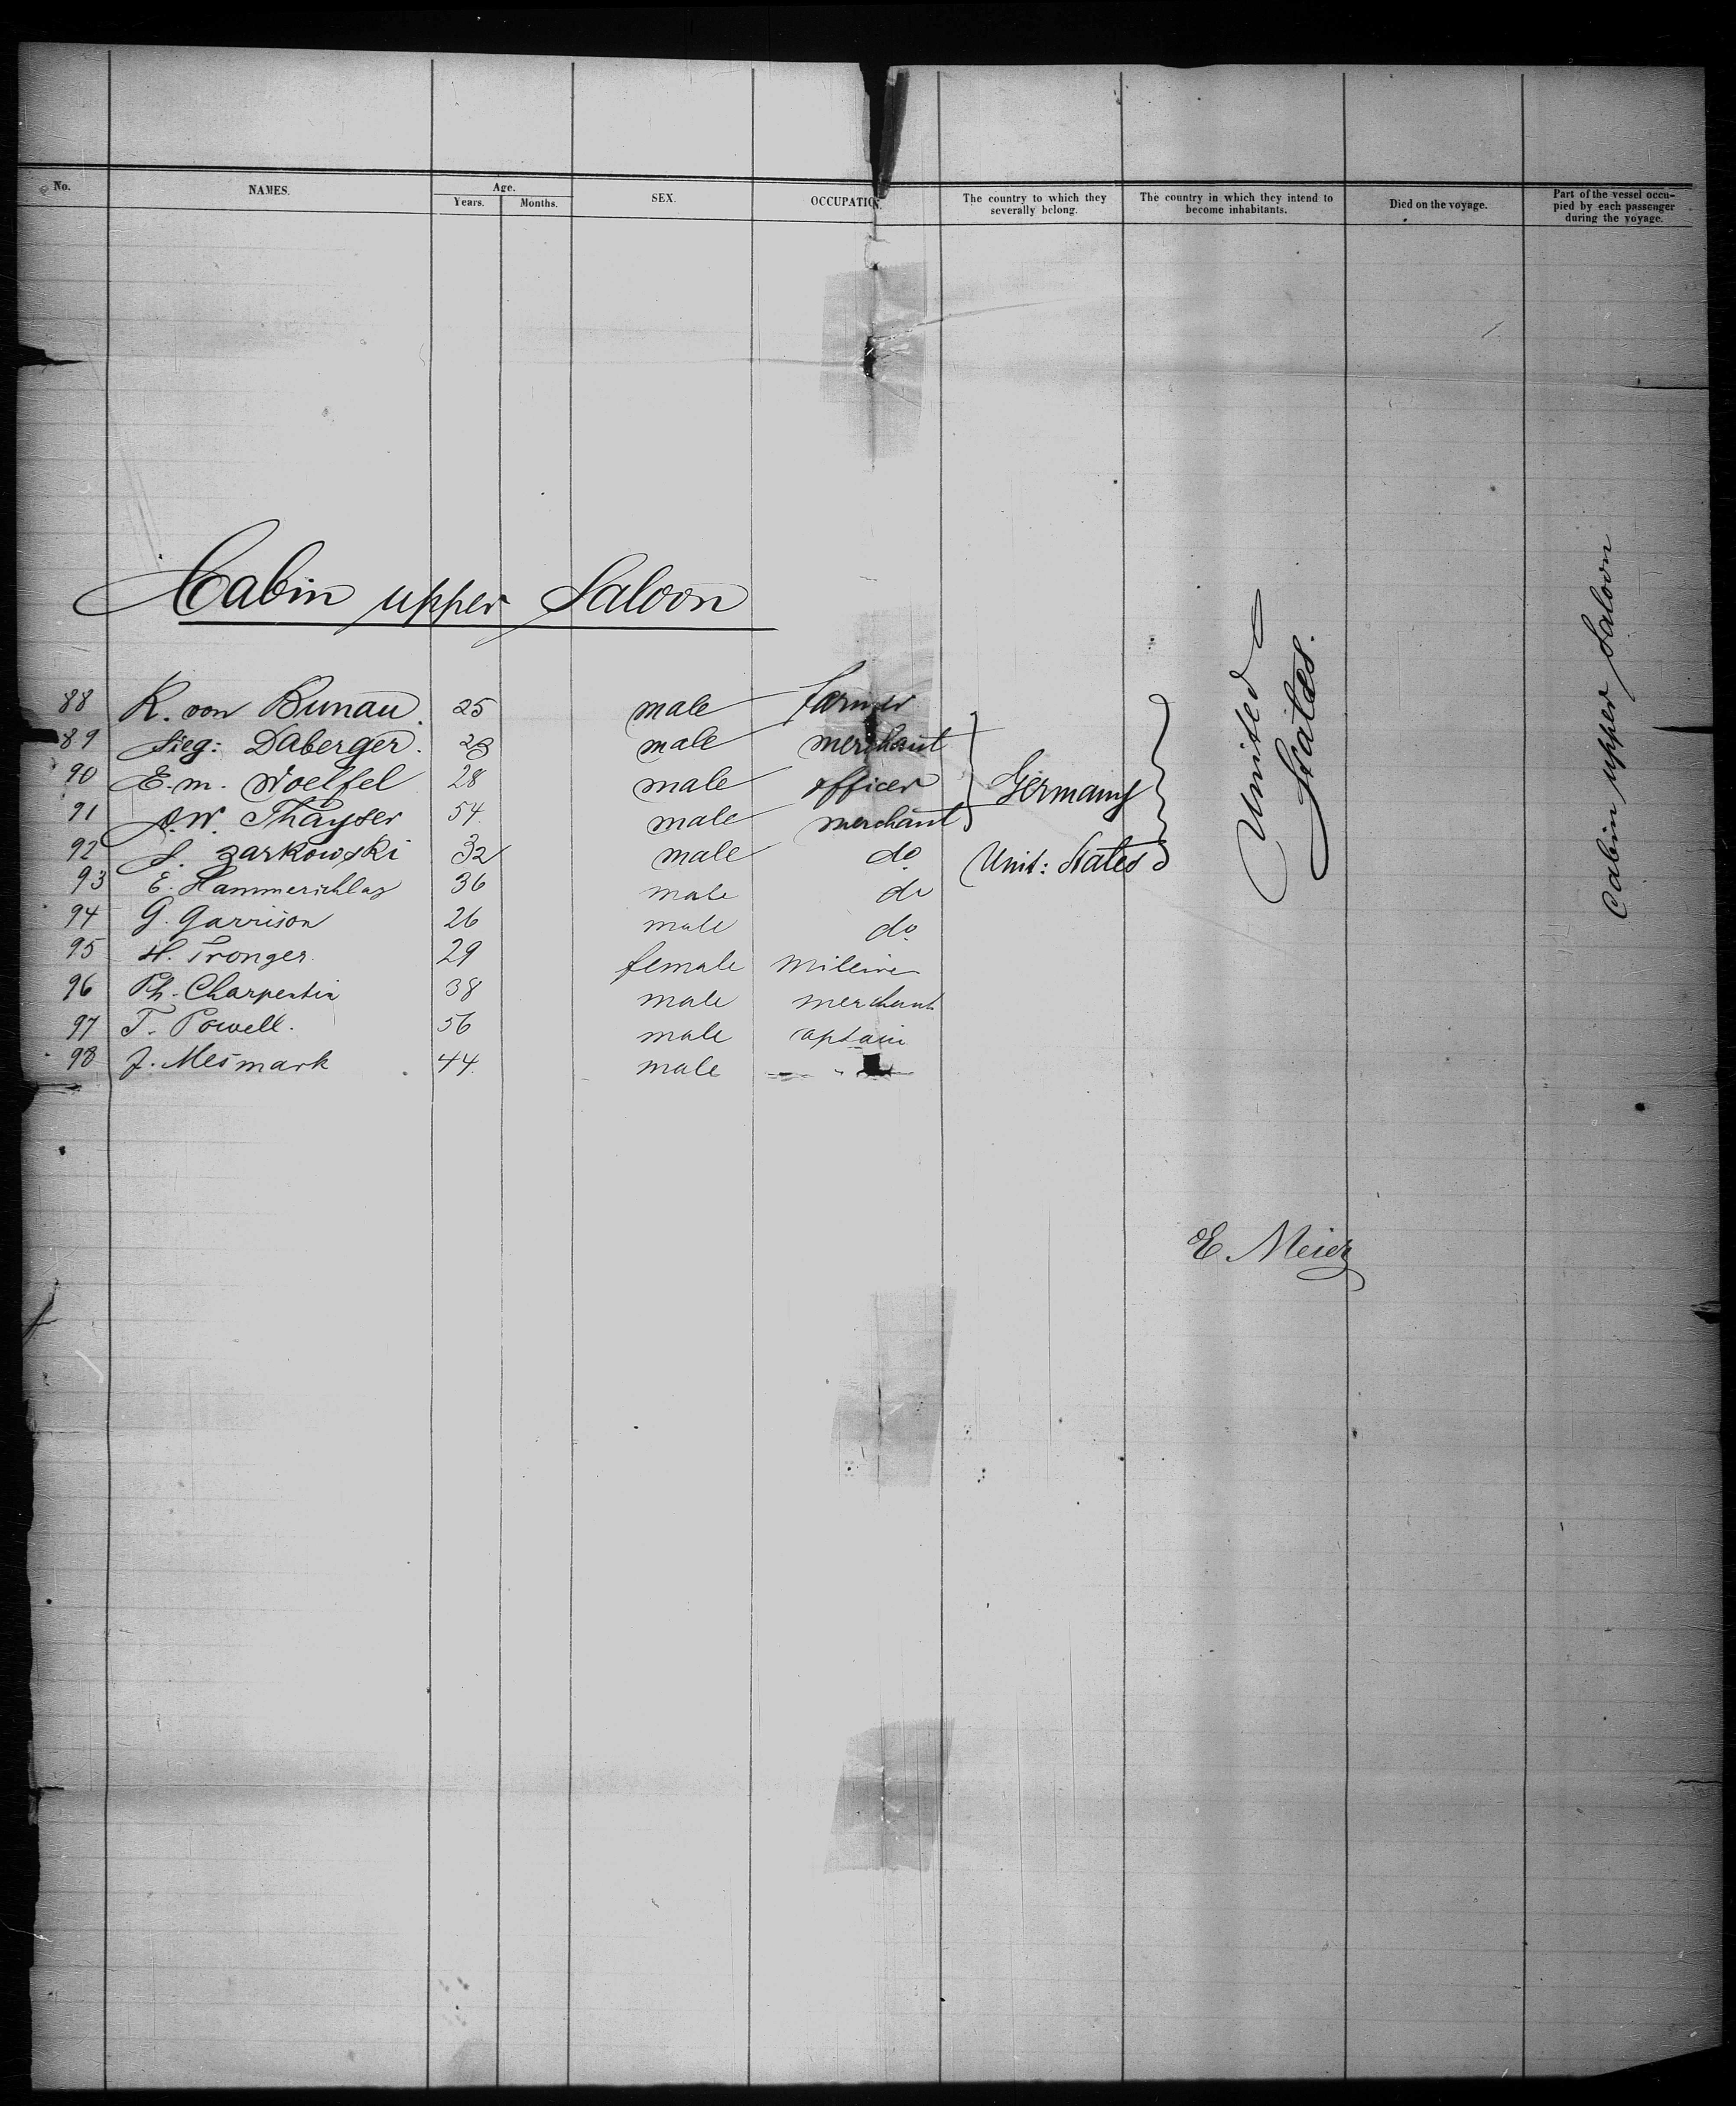 No. NAMES. Age. Years. Months. SEX. OCCUPATION. The country to which they severally belong. The country in which they intend to become inhabitants. Died on the voyage. Part of the vessel occupied by each passenger during the voyage.
Cabin upper Saloon
88 R. von Bunau. 25 male farmer
89 Sieg: Daberger. male merchant
90 E. m. Woelfel 28 male officer Germany
91 A.W. Thayser 54. male merchant
92 S. Zarkowski 32 male do Unit: States
93 E. Hammerschlag 36 male do
94 G. Garrison 26 male do
95 H. Tronger. 29 female
96 Ph. Charpentier 38 male merchant
97 T. Powell. 56 male captain
98 J. Mesmark 44. male
United States.
Cabin upper Saloon
E. Meier